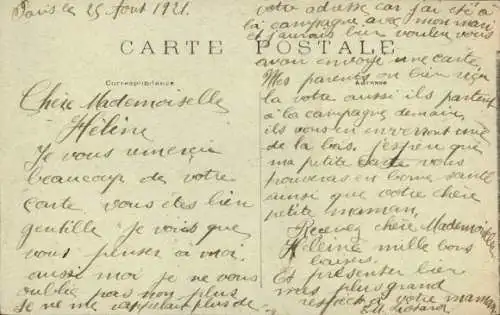 Paris le 25 Août 1921.
CARTE POSTALE
Correspondance
Chère Mademoiselle
Hélène
Je vous remercie
beaucoup de votre
carte vous êtes bien
gentille je vois que
vous pensez à moi
aussi moi je ne vous
oublie pas non plus
je ne me rappelait plus de
votre adresse car j'ai été à
la campagne avec mon mari
et j'aurais bien voulu vous
avoir envoyé une carte.
Adresse
Mes parents on bien reçu
la votre aussi ils partent
à la campagne demain
ils vous en enverront une
de la bas. J'espère que
ma petite carte vous
trouveras en bonne santé
ainsi que votre chère
petite maman.
Recevez chère Mademoiselle
Hélène mille bons
baisers.
Et présenter bien
mes plus grand
respects à votre maman